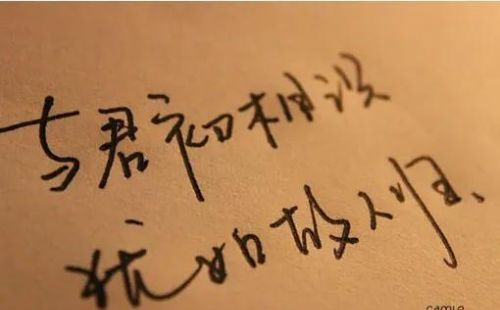 与君初相识
犹如故人归、
CAMIE